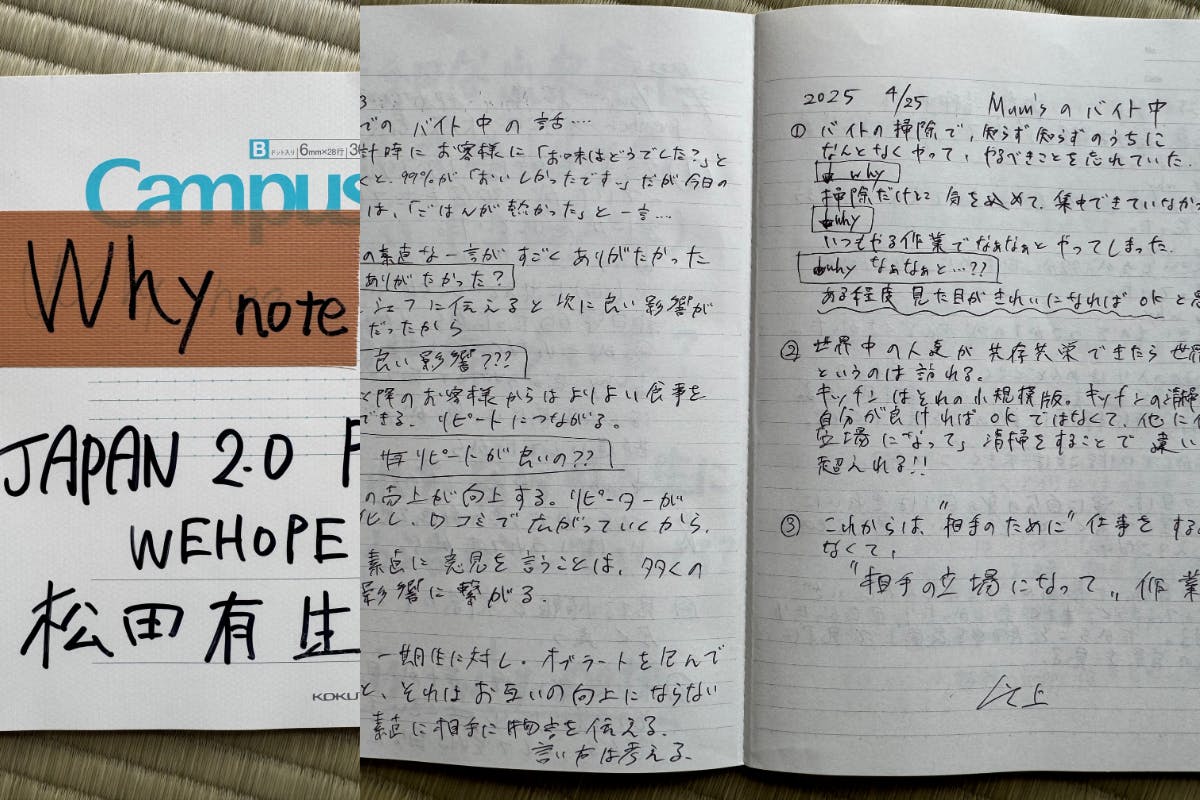 B ドット入り 6mm×28行
Campus
Why note
JAPAN 2.0
WEHOPE
松田有生
KOKU
3
での バイト中の話‥‥
計時に お客様に「お味はどうでした?」と
くと、99%が「おいしかったです。」だが今日の
は、「ごはんが乾かった」と一言‥‥
の素直な一言が すごく ありがたかった
ありがたかった?
シェフに伝えると 次に良い影響が
だったから
良い影響???
と降のお客様からは よりよい食事を
できる。リピートにつながる。
リピートが良いの??
の売上が向上する。リピーターが
化し、口コミで広がっていくから。
素直に意見を言うことは、多くの
影響に繋がる。
一期生に対し、オブラートを包んで
と、それは お互いの向上にならない
素直に相手に物事を伝える。
言い方は考える。
2025 4/25 Mum'sのバイト中
① バイトの掃除で、知らず知らずのうちに
なんとなくやって、やるべきことを忘れていた。
why
掃除だけに 気を込めて、集中できていなかっ
why
いつもやる作業でなぁなぁとやってしまった。
why なぁなぁと…??
ある程度 見た目がきれいになれば OK と
② 世界中の人達が 共存共栄できたら 世界
というのは 訪れる。
キッチンはそれの小規模版。キッチンの清掃
自分が良ければ OK ではなくて、他に
立場になって」清掃をすることで 違い
超入れる!!
③ これからは "相手のために" 仕事をする
なくて、
"相手の立場になって" 作業
以上